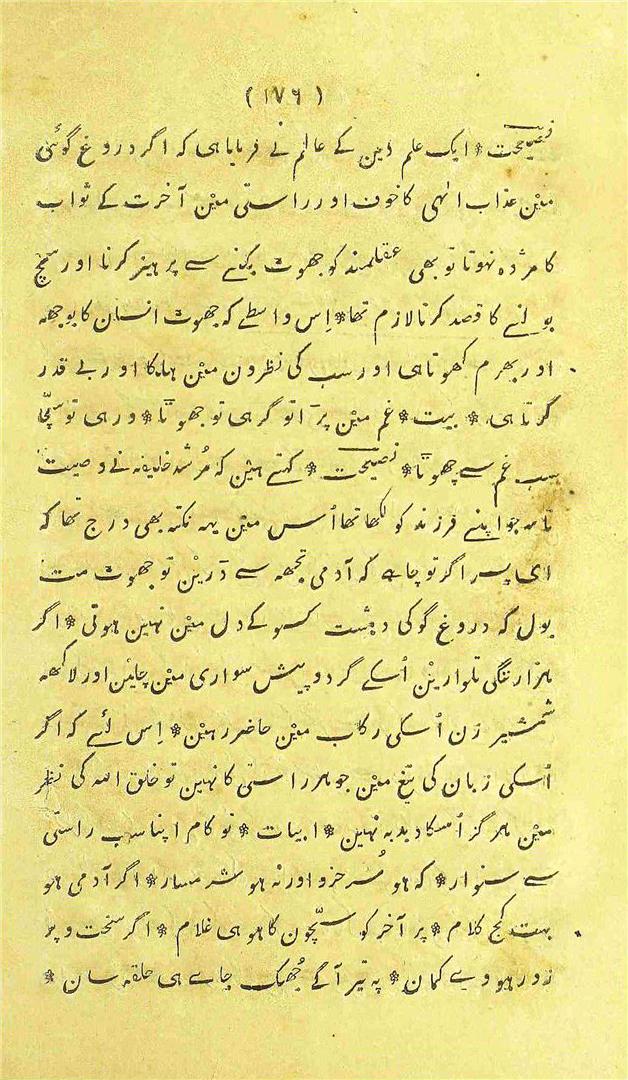 (۱۷۶)
نصیحت * ایک علم دین کے عالم نے فرمایا ہی کہ اگر دروغ گوئی
مین عذاب الٰہی کا خوف اور راستی مین آخرت کے ثواب
کا مژدہ نہوتا تو بھی عقلمند کو جھوٹ بکنے سے پرہیز کرنا اور سچ
بولنے کا قصد کرنا لازم تھا * اِس واسطے کہ جھوٹ انسان کا بوجھ
اور بھرم کھوتا ہی اور سب کی نظرون مین ہلکا اور بے قدر
کرتا ہی * بیت * غم مین پڑا تو گر ہی تو جھوٹا * ور ہی تو سچّا
سب غم سے چھوٹا * نصیحت * کہتے ہین کہ مُرشد خلیفہ نے وصیت
نامہ جو اپنے فرزند کو لکھا تھا اُس مین یہہ نکتہ بھی درج تھا کہ
ای پسر اگر تو چاہے کہ آدمی تجھہ سے ڈرین تو جھوٹ مت
بول کہ دروغ گو کی دہشت کسو کے دل مین نہین ہوتی * اگر
ہزار ننگی تلوارین اُسکے گرد و پیش سواری مین چلین اور لاکھہ
شمشیر زن اُسکی رکاب مین حاضر رہین * اِس لئے کہ اگر
اُسکی زبان کی تیغ مین جوہر راستی کا نہین تو خلق اللہ کی نظر
مین ہرگز اُسکا دبدبہ نہین * ابیات * تو کام اپنا سب راستی
سے سنوار * کہ ہو سُرخرو اور نہ ہو شرمسار * اگر آدمی ہو
بہت کج کلام * پر آخر کو سچّون کا ہو ہی غلام * اگر سخت و پر
زور ہووے کمان * پہ تیر آگے جُھک جاے ہی حلقہ سان *